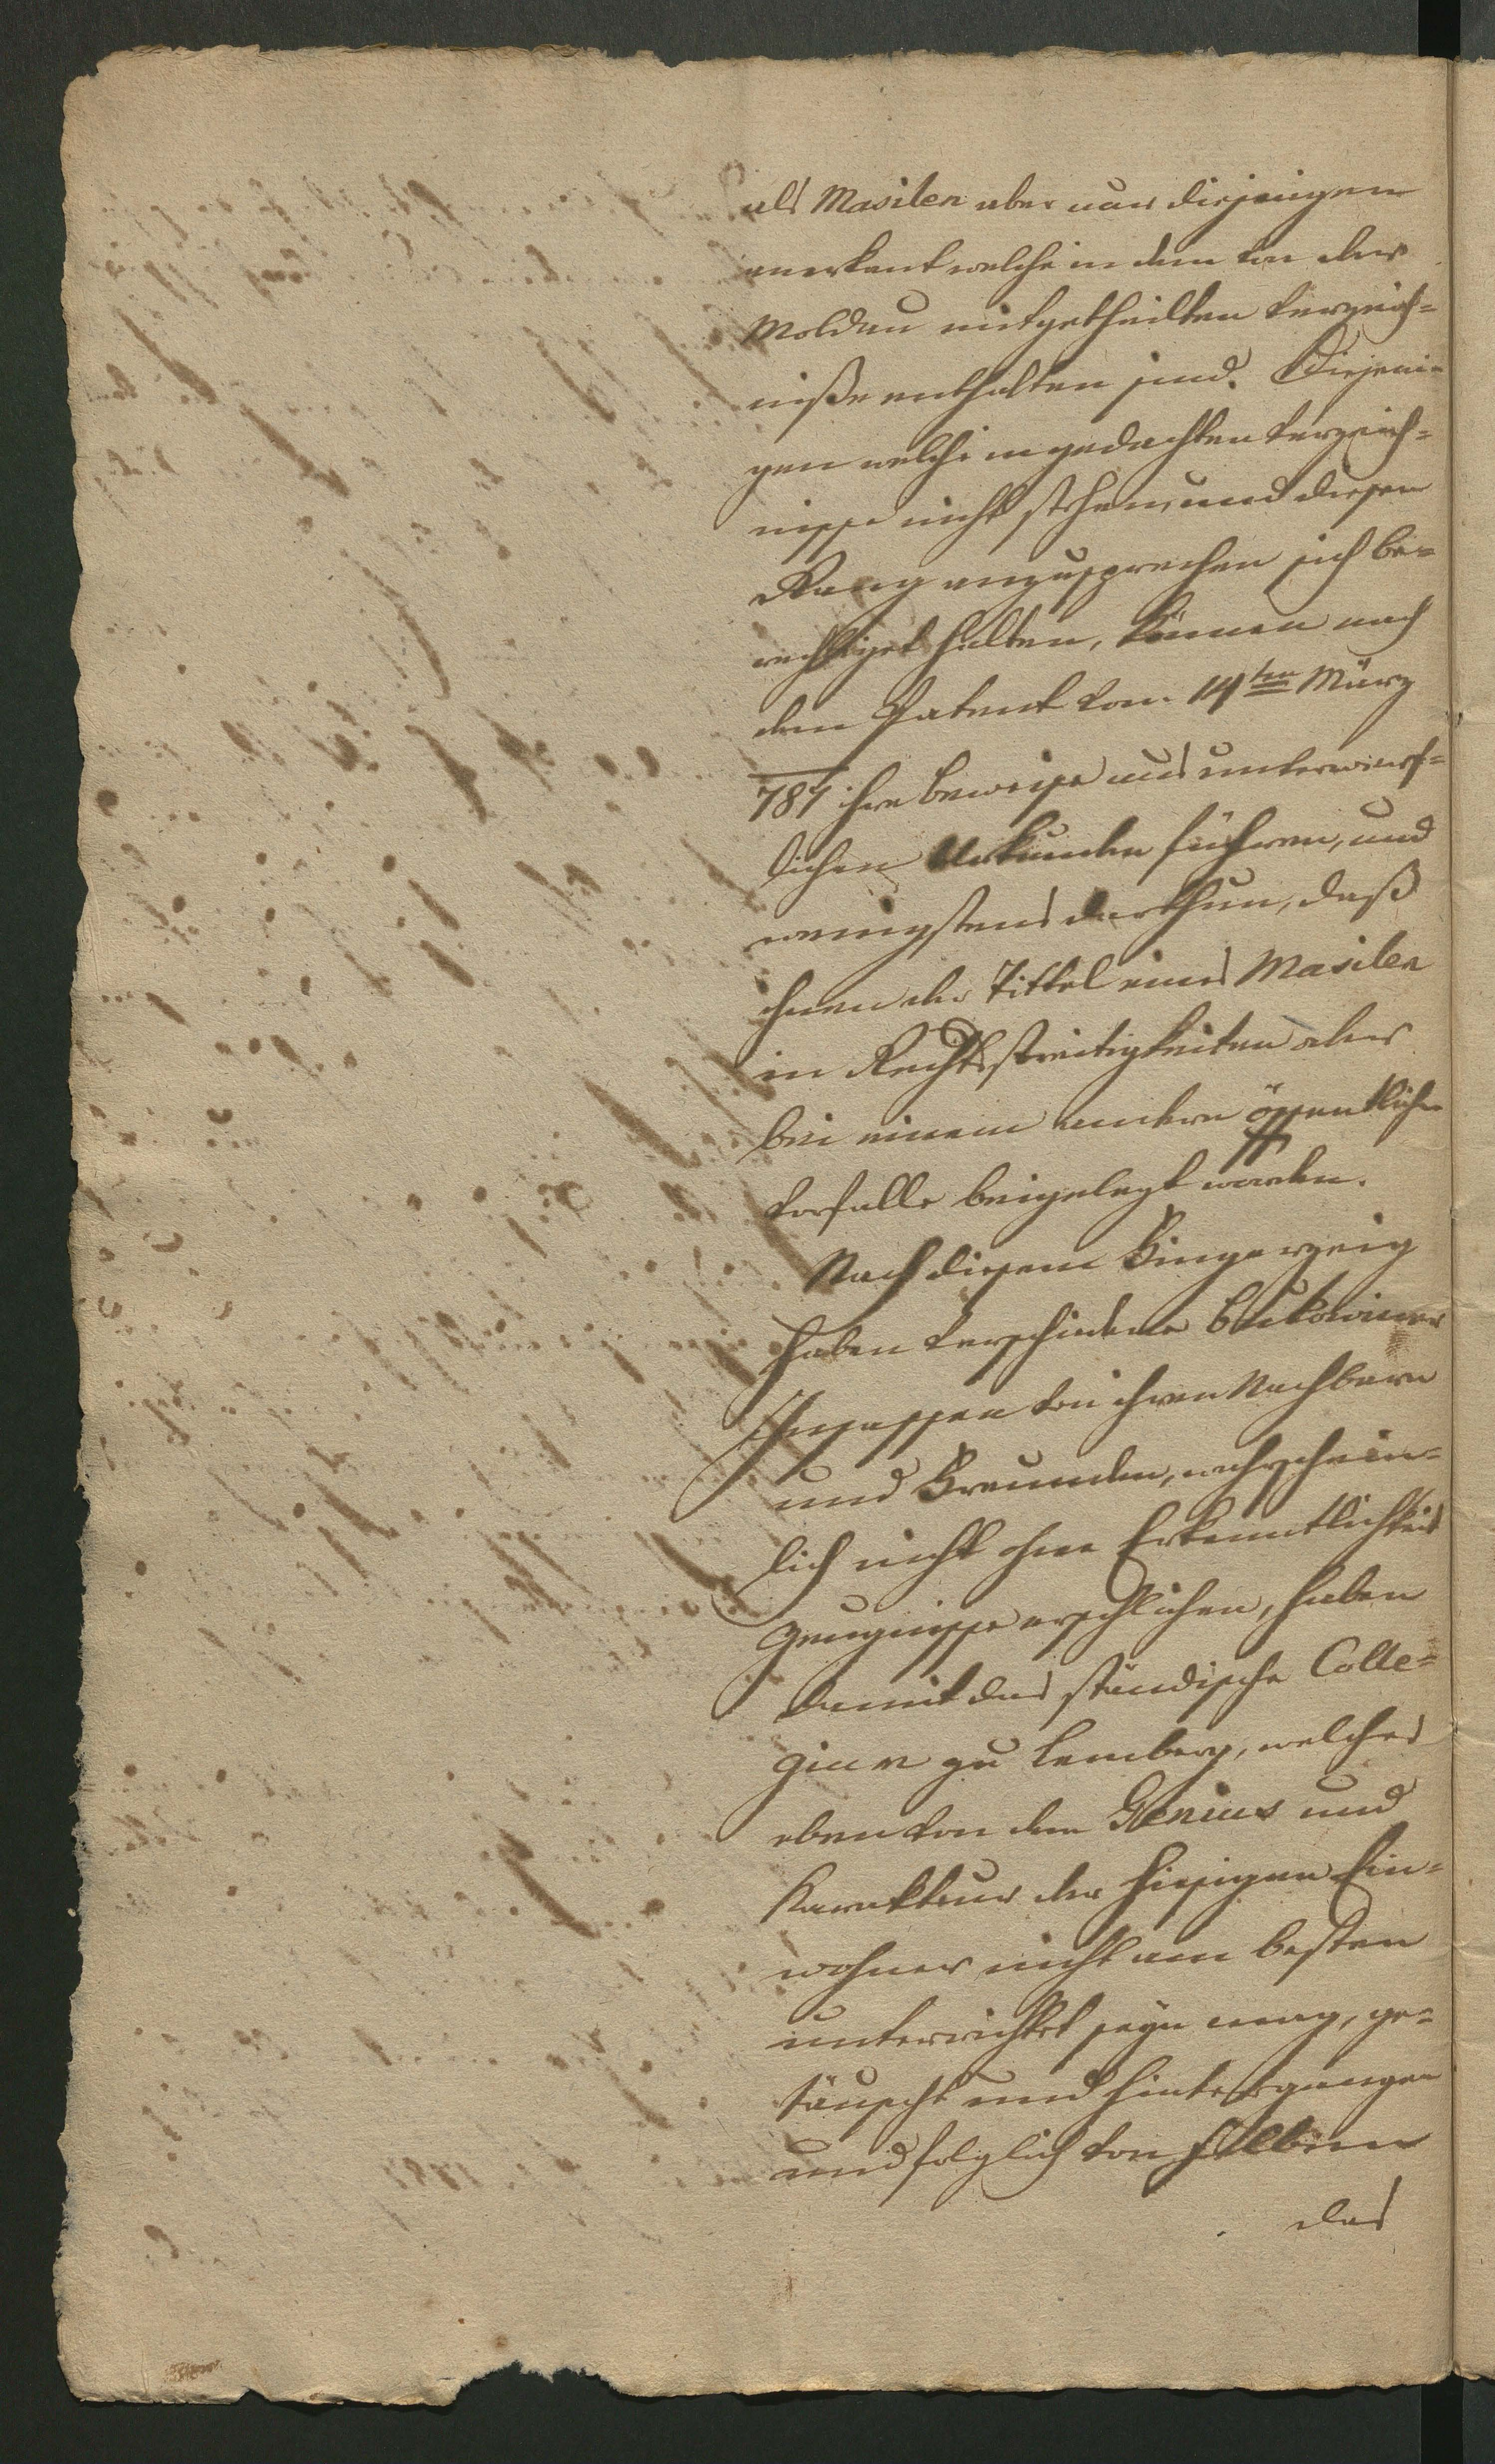 als Masilen aber nur diejenigen
anerkant welche in dem von der
Moldau mitgetheilten Verzeich=
niße enthalten sind. Diejeni=
gen welche in gedachten Verzeich=
nisse nicht stehen, und diesen
Rang anzusprechen sich be=
rechtiget halten, können nach
dem Patent vom 14ten März
787 ihre Beweise aus unverwerf=
lichen Urkunden führen, und
wenigstens darthun, daß
ihnen der Tittel eines Masilen
in Rechtsstreitigkeiten oder
bei einem andern öffentlichen
Vorfalle beigelegt worden.
Nach diesem Fingerzeig
haben verschiedene Bukowiner
Insassen von ihren Nachbarn
und Freunden, wahrschein=
lich nicht ohne Erkenntlichkeit
Zeugnisse erschlichen, haben
damit das ständische Colle=
gium zu Lemberg, welches
eben von dem Genius und
Karakteur der hiesigen Ein=
wohner nicht am besten
unterrichtet seyn mag, ge=
täuscht und hintergangen
und folglich von selben
das